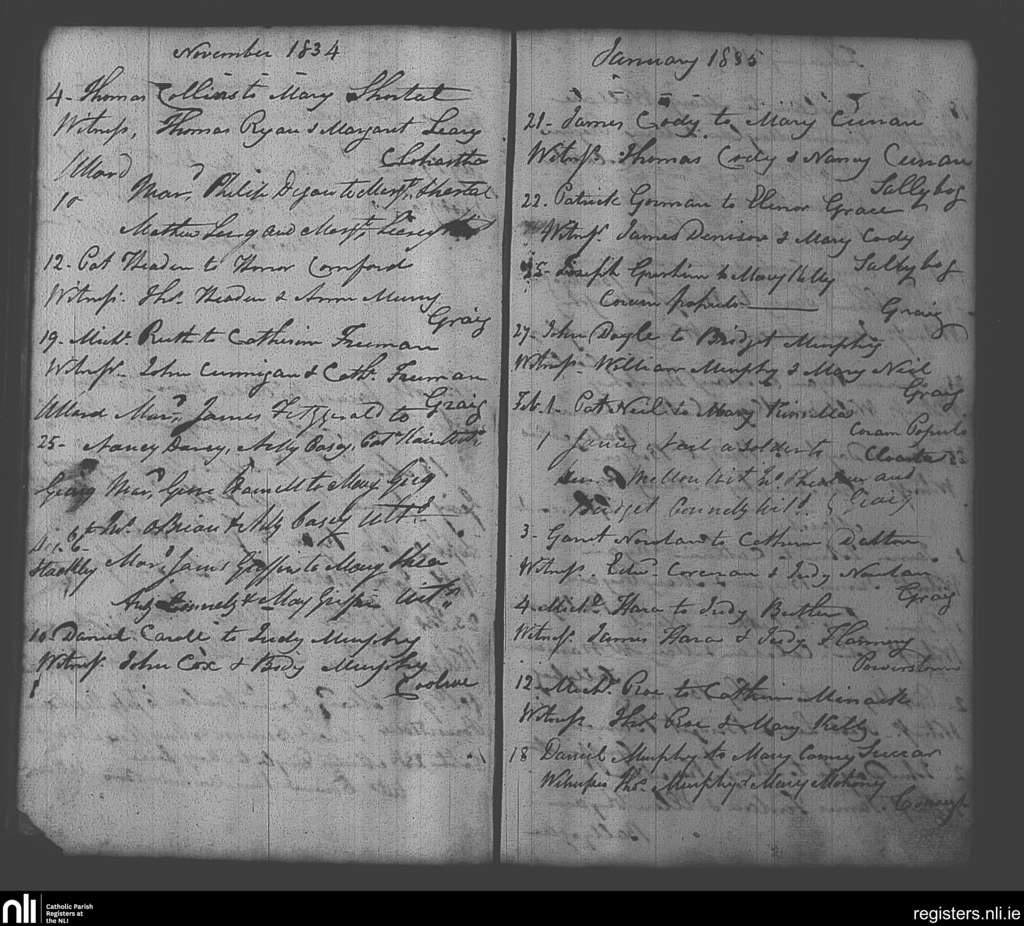 November 1834
4 - Thomas Collins to Mary Shortal
Witness, Thomas Ryan & Margaret Leary
Clohastha
Ullard
10 Mard, Philip Dejan to Margt. Shortal
Mathew Leary and Margt. Leary
12 - Pat Headen to Honor Comford
Witness. Thos. Headen & Anne Murry
Graig
19 - Michl. Ruth to Catherine Freeman
Witness. John Cunnigan & Cath. Freeman
Graig
Ullard Mard, James Fitzgerald to
25 - Nancy Darcy, Arty Casey, Pat
Graig Mard,
Thos. O Brian & Arty Casey Wits.
6
Mard James Griffin to Mary Shea
Connely & May Griffin Wits.
10 - Daniel Caroll to Judy Murphy
Witness John Cox & Body Murphy
Coolroe
January 1835
21 - James Cody to Mary Curran
Witness. Thomas Cody & Nancy Curran
Sallybog
22 - Patrick Gorman to Elenor Grace
Witness. James Denison & Mary Cody
Sallybog
25 - Joseph Gershim to Mary Kelly
Coram populo
Graig
27 - John Doyle to Bridget Murphy
Witness. William Murphy & Mary Neil
Graig
Feb. 1 - Pat Neil to Mary Kinsella
Coram Populo
1 James Neil a Soldier to
Mellon Wit and
Bridget Connely Wits. Graig
3 - Garret Nowlan to Catherine Dalton
Witness. Edwd. Corcoran & Judy Nowlan
Graig
4 - Michl. Hara to Judy Butler
Witness. James Hara & Judy Flannery
Powerstown
12 - Michl. Roe to Catherine
Witness. Thos. Roe & Mary Kelly
18 Daniel Murphy to Mary
Witnesses Thos. Murphy & Mary Mahony
nli
Catholic Parish
Registers at
the NLI
registers.nli.ie